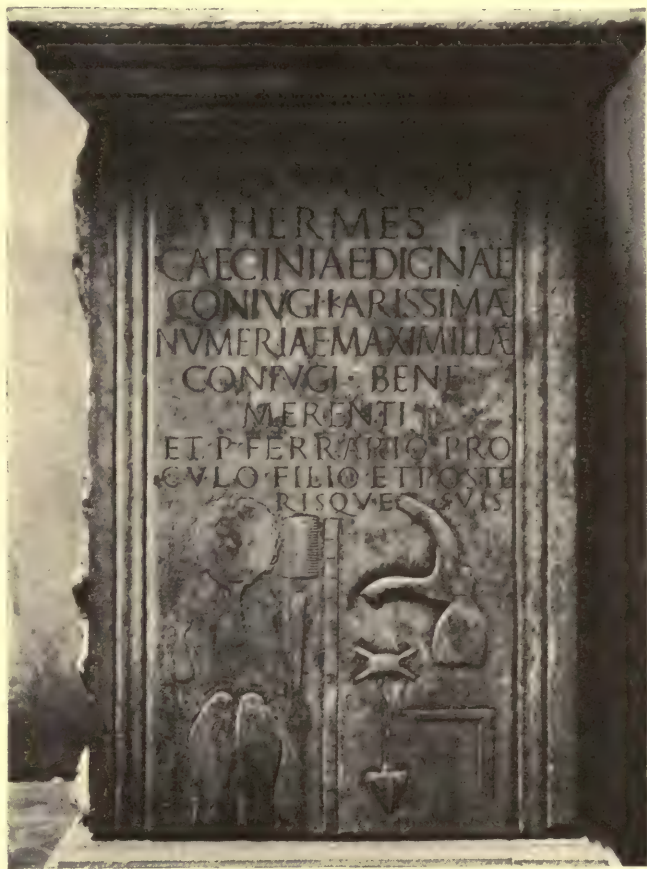 HERMES
CAECINIAEDIGNAE
CONIVGI KARISSIMAE
NVMERIAE MAXIMILLAE
CONIVGI · BENE
MERENTI
ET · P · FERRARIO · PRO
CVLO · FILIO · ET POSTE
RISQVE SVIS